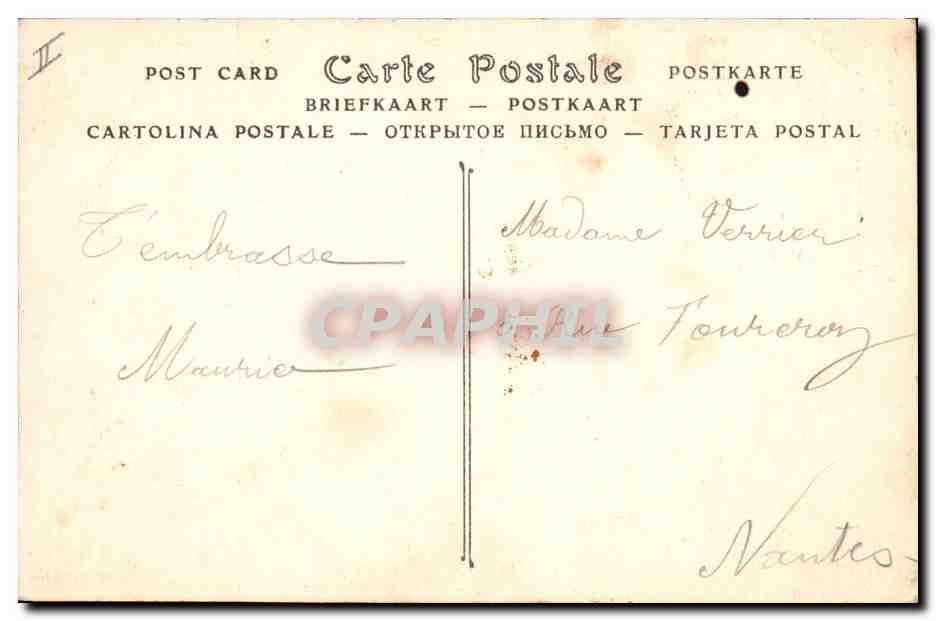 II
POST CARD Carte Postale POSTKARTE
BRIEFKAART — POSTKAART
CARTOLINA POSTALE — ОТКРЫТОЕ ПИСЬМО — TARJETA POSTAL
T'embrasse
Maurice
Madame Verrier
Rue Fourcroy
Nantes
CPAPHIL